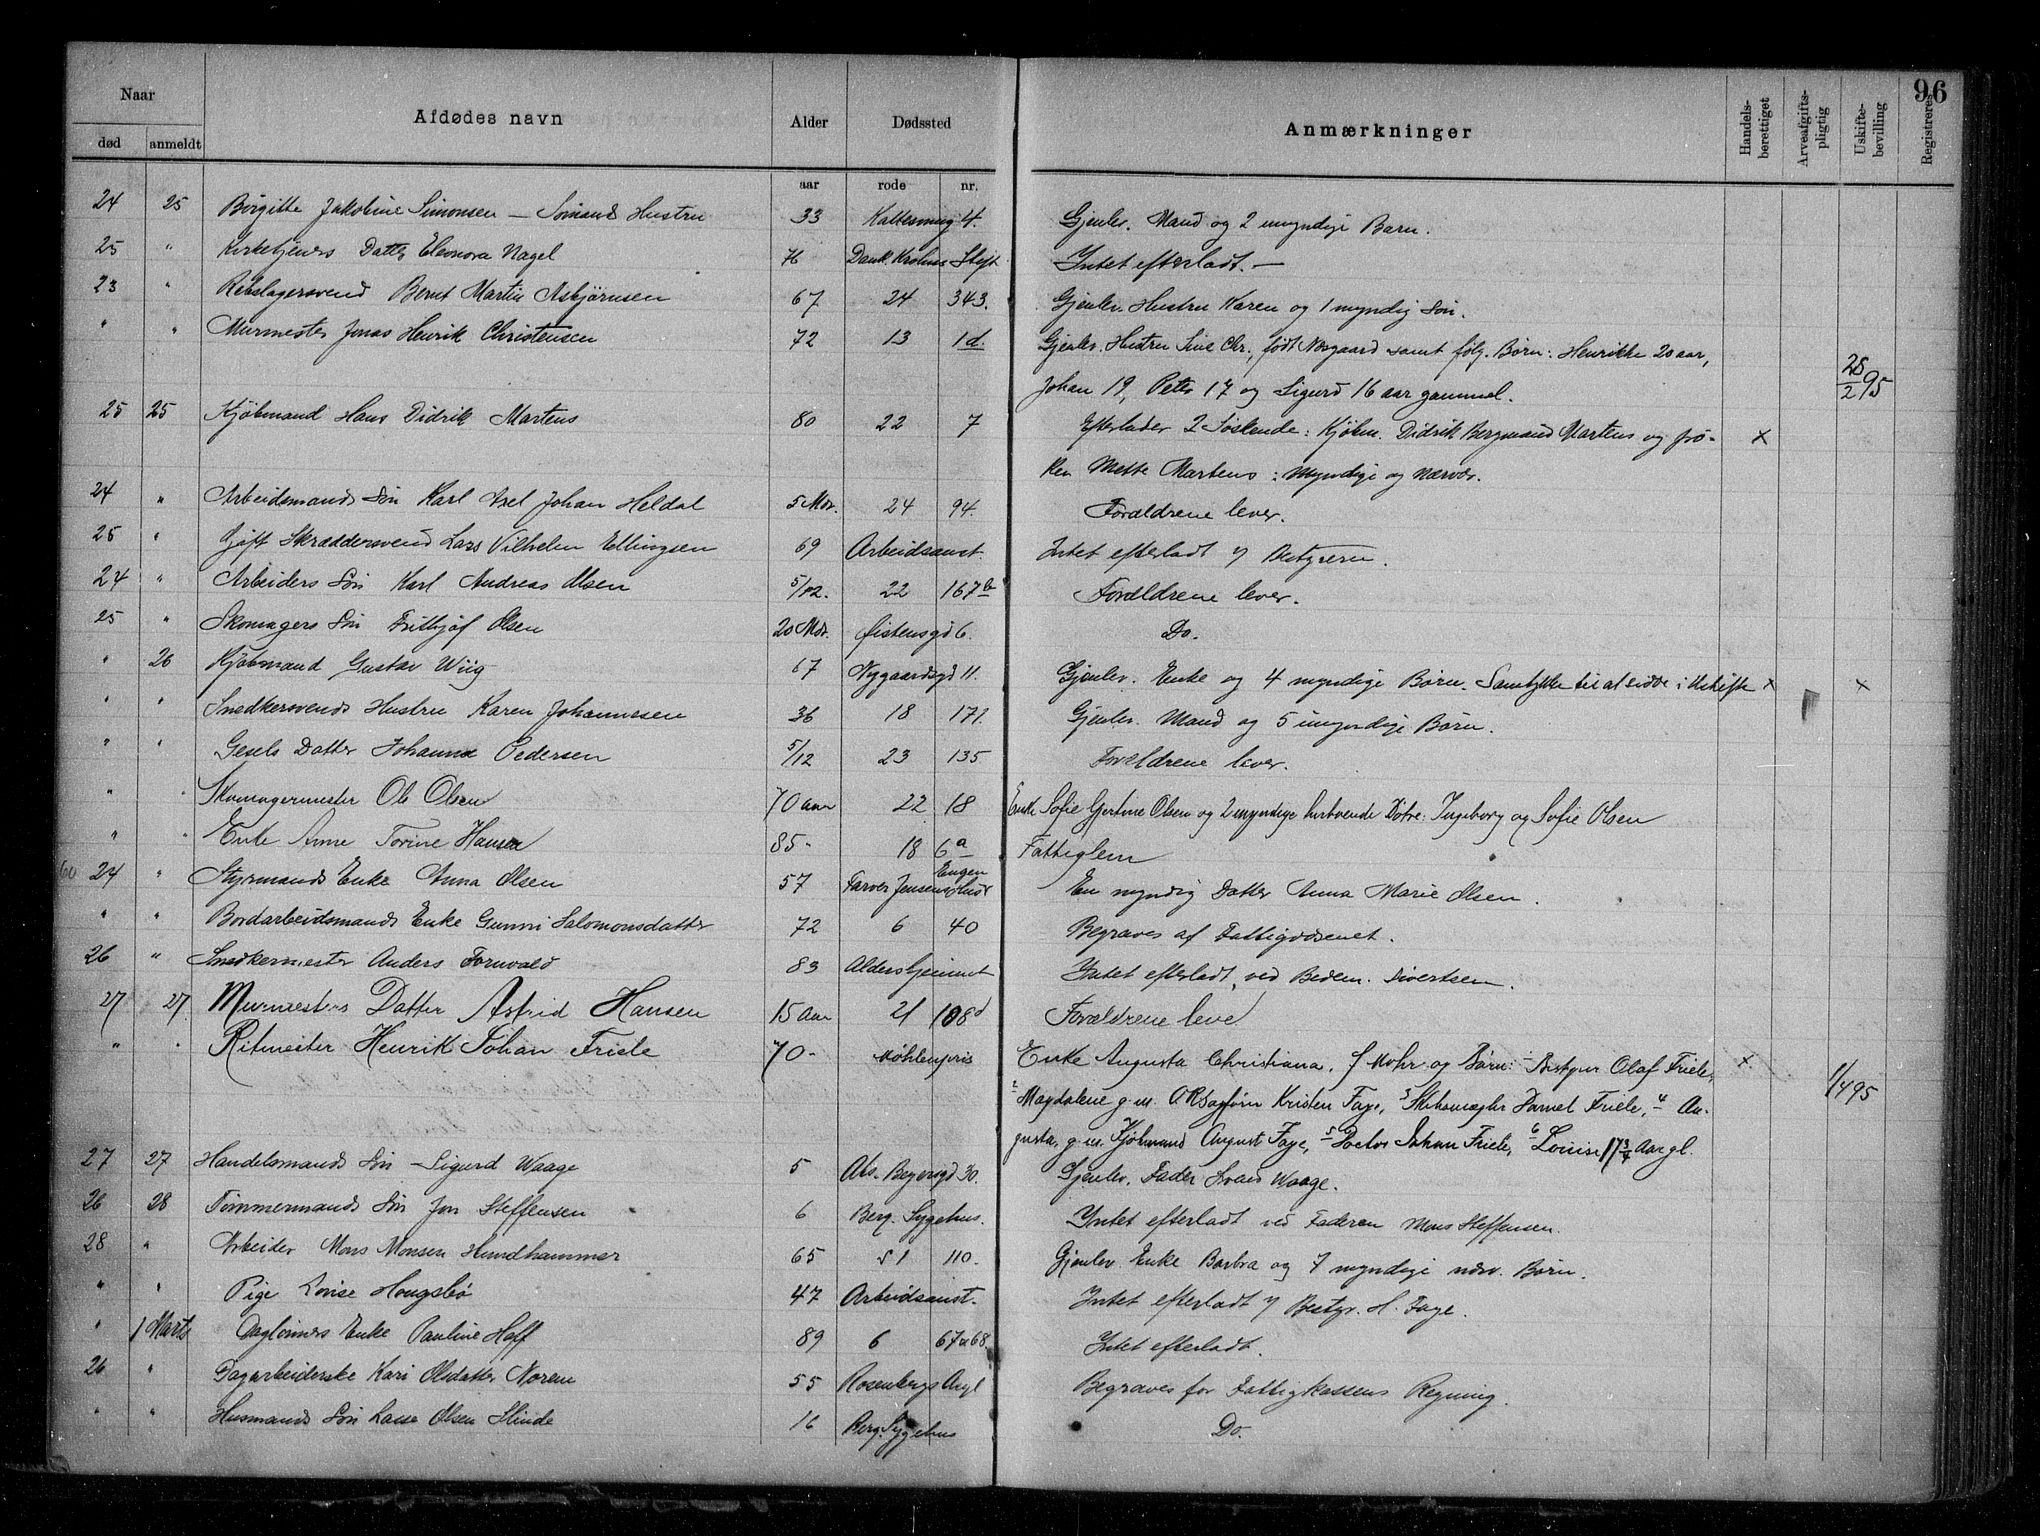 96
Naar
død anmeldt Afdødes navn Alder Dødssted Anmærkninger Handels-berettiget Arveafgifts-pligtig Uskifte-bevilling Registreres
aar rode nr.
24 25 Birgitte Jakobine Simonsen — Sømands Hustru 33 Kaltesmug 4. Gjenlev. Mand og 2 umyndige Børn.
25 " Kirketjeners Datter Eleonora Nagel 76 Dank. Krohns Stift Intet efterladt. —
23 " Rebslagersvend Bernt Martin Asbjørnsen 67 24 343. Gjenlev. Hustru Karen og 1 myndig Søn.
" " Murmester Jonas Henrik Christensen 72 13 1d. Gjenlev. Hustru Sine Chr., født Nøsgaard samt følg. Børn: Henrikke 20 aar,
Johan 19, Peter 17 og Sigurd 16 aar gammel. 28/2 95
25 25 Kjøbmand Hans Didrik Martens 80 22 7 Efterlader 2 Søskende: Kjøbm. Didrik Bergmand Martens og frø- x
ken Mette Martens: myndige og nærvær.
24 " Arbeidsmands Søn Karl Axel Johan Heldal 5 Mdr. 24 94. Forældrene lever.
25 " Gift Skræddersvend Lars Vilhelm Ellingsen 69 Arbeidsanst. Intet efterladt / Bestyreren.
24 " Arbeiders Søn Karl Andreas Olsen 5/12. 22 167 b Forældrene lever.
25 " Skomagers Søn Frithjof Olsen 20 Mdr. Øistensgd 6. Do.
" 26 Kjøbmand Gustav Wiig 67 Nygaardsgd 11. Gjenlev. Enke og 4 myndige Børn. Samtykke til at sidde i Uskifte x x
" " Snedkersvends Hustru Karen Johannesen 36 18 171. Gjenlev. Mand og 5 umyndige Børn.
" " Gesels Datter Johanna Pedersen 5/12 23 135 Forældrene lever.
" " Skomagermester Ole Olsen 70 aar 22 18 Enke Sofie Gjertine Olsen og 2 myndige hertværende Døtre: Ingeborg og Sofie Olsen
" " Enke Anne Torine Hansen 85 - 18 6a Fattiglem
60 24 " Styrmands Enke Anna Olsen 57 Farver Jensens Engen hus En myndig Datter Anna Marie Olsen.
" " Bordarbeidsmands Enke Gunni Salomonsdatter 72 6 40 Begraves af Fattigvæsenet.
26 " Snedkermester Anders Fornvald 83 Aldershjemmet Intet efterladt, ved Bedem. Sivertsen.
27 27 Murmesters Datter Astrid Hansen 15 Aar 21 108 d Forældrene leve
" " Ritmester Henrik Johan Friele 70 - Møhlenpris Enke Augusta Christiana, f Mohr og Børn: Bestyrer Olaf Friele, x. 1/4 95
2 Magdalene g. m. ORSagfører Kristen Faye, 3 Skibsmægler Daniel Friele, 4 Au-
gusta, g. m. Kjøbmand August Faye, 5 Doctor Johan Friele, 6 Louise 17 3/4 Aar gl.
27 27 Handelsmands Søn — Sigurd Waage 5 Abs. Beyersgd 30. Gjenlev. Fader Svend Waage.
26 28 Tømmermands Søn Jon Steffensen 6 Berg. Sygehus. Intet efterladt ved Faderen Mons Steffensen.
28 " Arbeider Mons Monsen Hundhammer 65 s 1 110. Gjenlev. Enke Barbra og 7 myndige nærv. Børn.
" " Pige Lovise Hougsbø 47 Arbeidsanst. Intet efterladt / Bestyr. H. Faye.
" 1 Marts Dagleiners Enke Pauline Hoff 89 6 67 a 68 Intet efterladt.
26 " Dagarbeiderske Kari Olsdatter Noren 55 Rosenbergs Asyl Begraves for Fattigkassens Regning.
" " Husmands Søn Lasse Olsen Slinde 16 Berg. Sygehus Do.